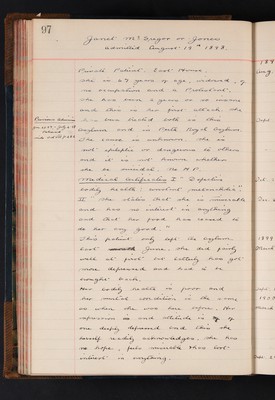 97
Janet McGregor or Jones
admitted August 19th 1898.
Private Patient. East House.
She is 63 years of age, widowed, of
no occupation and a Protestant.
She has been 2 years or so insane
and this is her first attack. She
has been treated both in this
Asylum and in Perth Royal Asylum.
The cause is unknown. She is
not epileptic or dangerous to others
and it is not known whether
she be suicidal. No H.P.
Medical Certificates I "Defective
bodily health; constant restlessness".
II "She states that she is miserable
and has no interest in anything
and that her food has ceased to
do her any good."
This patient only left the asylum
last June. She did fairly
well at first but latterly has got
more depressed and had to be
brought back.
Her bodily health is poor and
her mental condition is the same
as when she was here before. Her
expression and attitude is of
one deeply depressed and this she
herself readily acknowledges. She has
no hope, feels miserable & has lost
interest in anything.